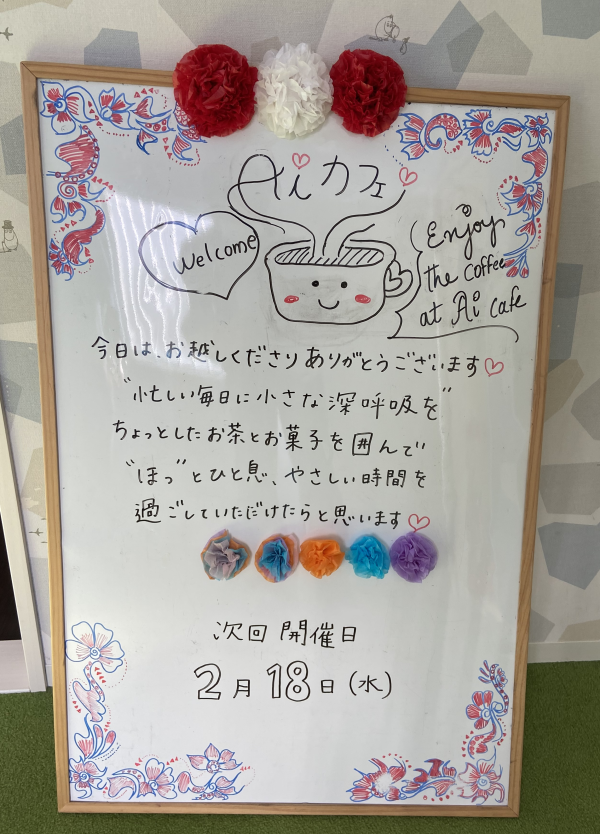 Aiカフェ
Welcome
Enjoy
the coffee
at Ai cafe
今日は、お越しくださりありがとうございます
"忙しい毎日に小さな深呼吸を"
ちょっとしたお茶とお菓子を囲んで
"ほっ"とひと息、やさしい時間を
過ごしていただけたらと思います
次回 開催日
2月18日(水)